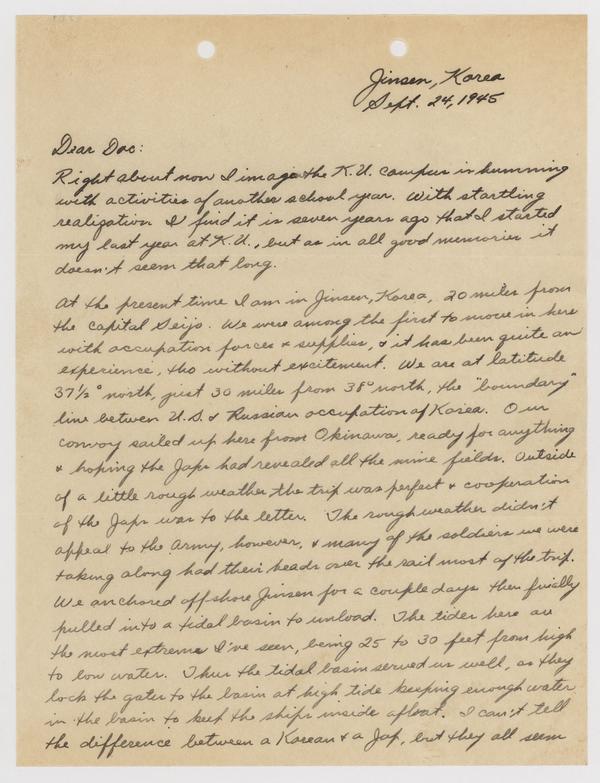 Jinsen, Korea
Sept. 24, 1945
Dear Doc:
Right about now I image the K.U. campus is humming
with activities of another school year. With startling
realization I find it is seven years ago that I started
my last year at K.U., but as in all good memories it
doesn't seem that long.
At the present time I am in Jinsen, Korea, 20 miles from
the capital Seijo. We were among the first to move in here
with occupation forces & supplies, & it has been quite an
experience, tho without excitement. We are at latitude
37½° north, just 30 miles from 38° north, the "boundary"
line betwen U.S. & Russian occupation of Korea. Our
convoy sailed up here from Okinawa, ready for anything
& hoping the Japs had revealed all the mine fields. Outside
of a little rough weather the trip was perfect & cooperation
of the Japs was to the letter. The rough weather didn't
appeal to the Army, however, & many of the soldiers we were
taking along had their heads over the rail most of the trip.
We anchored offshore Jinsen for a couple days then finially
pulled into a tidal basin to unload. The tides here are
the most extreme I've seen, being 25 to 30 feet from high
to low water. Thus the tidal basin served us well, as they
lock the gates to the basin at high tide keeping enough water
in the basin to keep the ships inside afloat. I can't tell
the difference between a Korean & a Jap, but they all seem